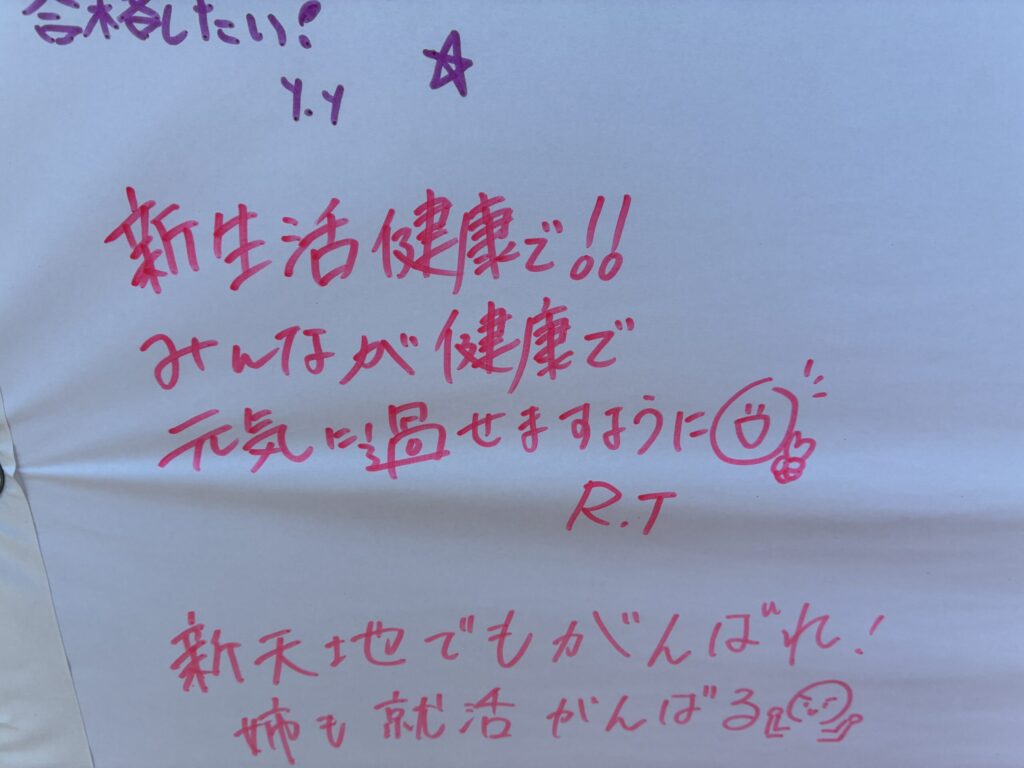 合格したい!
Y.Y
新生活健康で!!
みんなが健康で
元気に過せますように
R.T
新天地でもがんばれ!
姉も就活がんばる